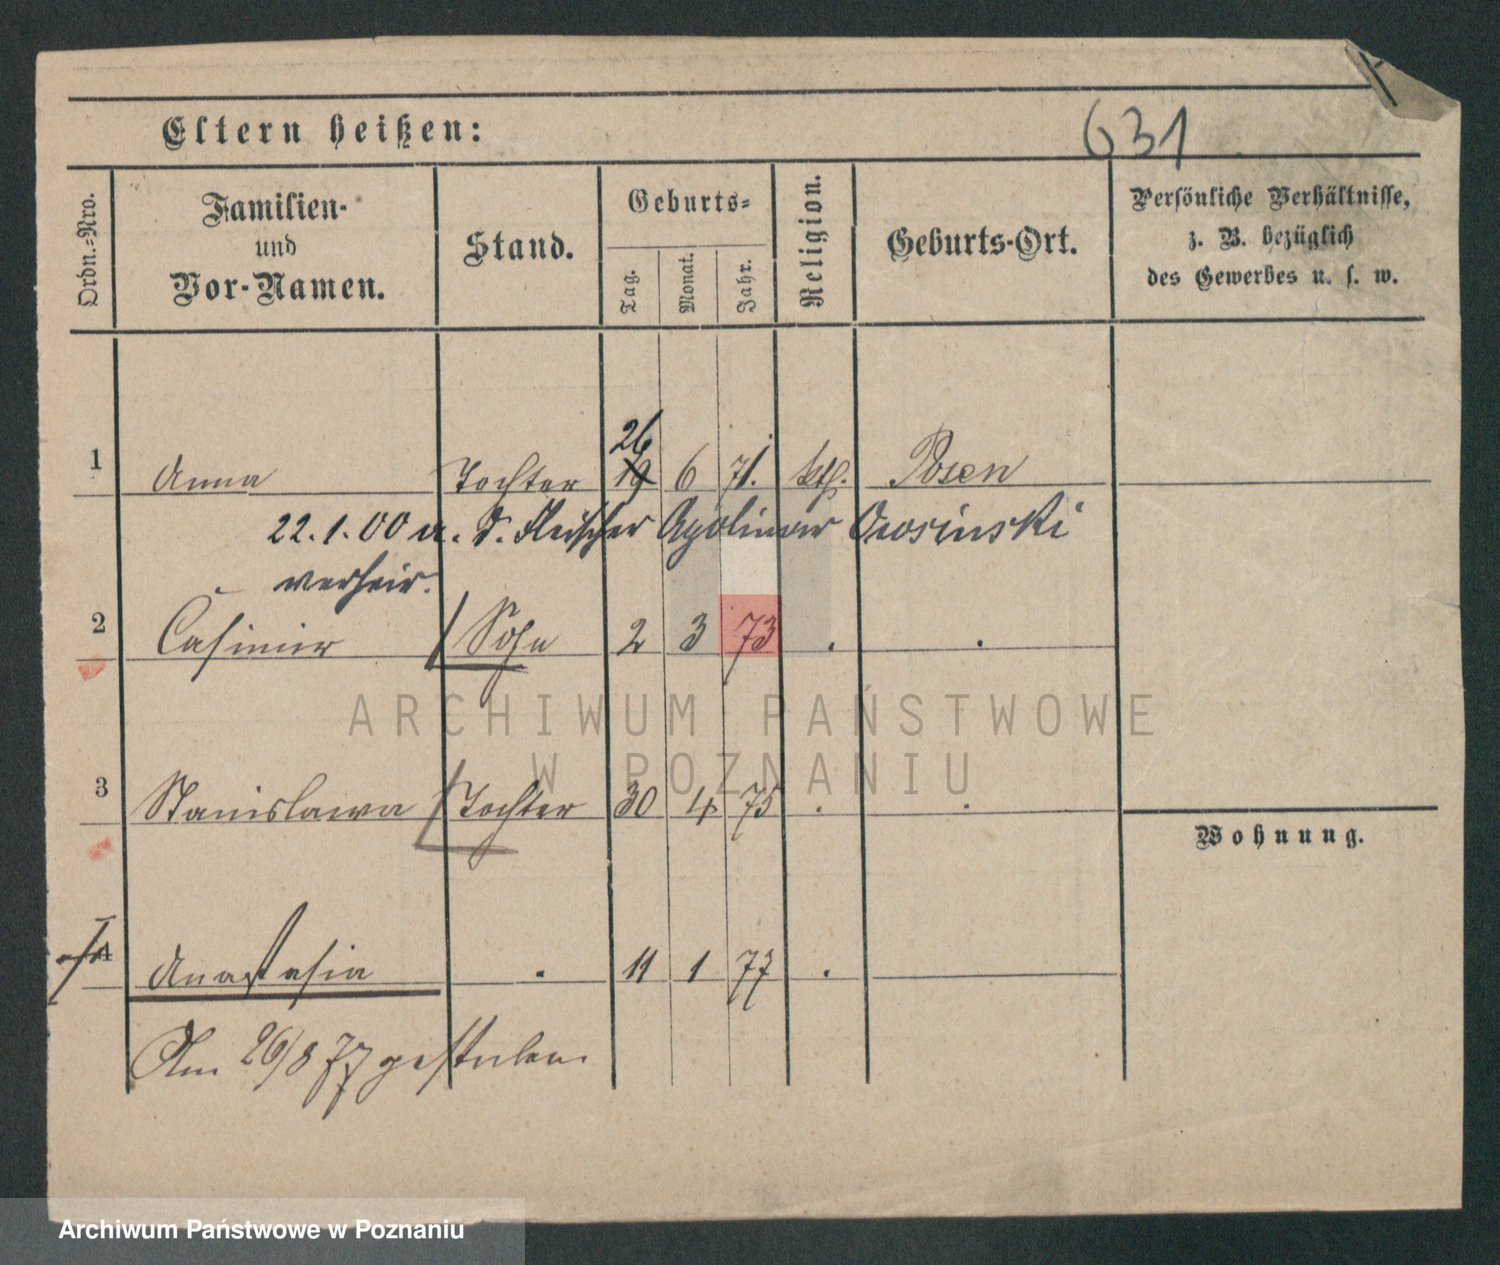 631
Eltern heißen:
Ordn.-Nro.
Familien- und Vor-Namen.
Stand.
Geburts-
Tag. Monat. Jahr.
Religion.
Geburts-Ort.
Persönliche Verhältnisse,
z. B. bezüglich
des Gewerbes u. s. w.
26
1 Anna Tochter 19 6 71. kth. Posen
22.1.00 a. d. Fleischer Apolinar Owsinski
verheir.
2 Casimir Sohn 2 3 73 . .
ARCHIWUM PAŃSTWOWE
W POZNANIU
3 Stanislawa Tochter 30 4 75 . .
Wohnung.
4 Anastasia . 11 1 77 .
Am 26/8 77 gestorben.
Archiwum Państwowe w Poznaniu